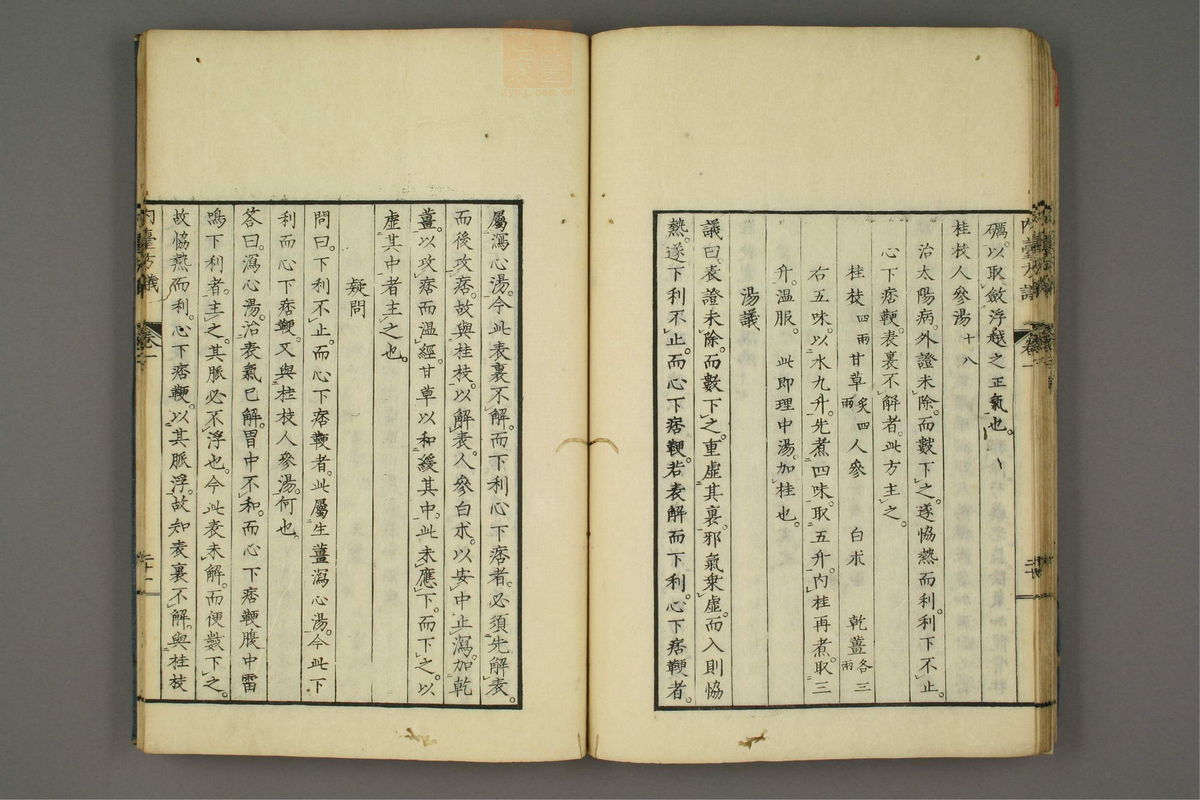 礪。以取斂浮越之正氣也。
桂枝人參湯十八
治太陽病。外證未除。而數下之。遂恊熱而利。利下不止。
心下痞鞕。表裏不解者。此方主之。
桂枝四兩甘草炙四兩人參 白朮 乾薑各三兩
右五味。以水九升。先煮四味。取五升。內桂再煮。取三
升。溫服。 此即理中湯。加桂也。
湯議
議曰。表證未除。而數下之。重虛其裏。邪氣乘虛。而入則恊
熱。遂下利不止。而心下痞鞕。若表解而下利。心下痞鞕者。
屬瀉心湯。今此表裏不解。而下利心下痞者。必須先解表。
而後攻痞。故與桂枝。以解表。人參白朮。以安中止瀉。加乾
薑。以攻痞而溫經。甘草以和緩其中。此未應下。而下之。以
虛其中者主之也。
疑問
問曰。下利不止。而心下痞鞕者。此屬生薑瀉心湯。今此下
利而心下痞鞕。又與桂枝人參湯。何也
答曰。瀉心湯。治表氣已解。胃中不和。而心下痞鞕腹中雷
鳴下利者。主之。其脈必不浮也。今此表未解。而便數下之。
故恊熱而利。心下痞鞕。以其脈浮。故知表裏不解。與桂枝
內臺方議
卷一
十一